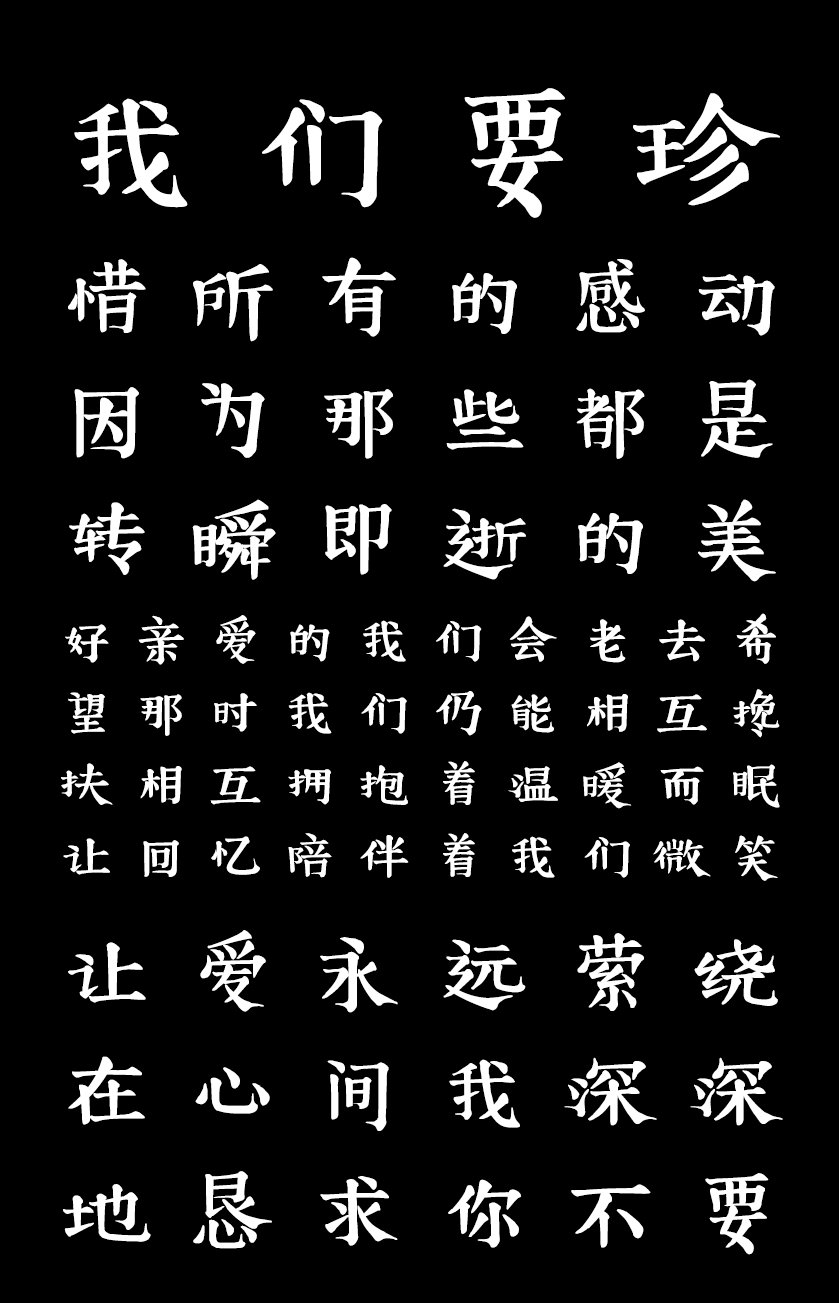 我们要珍
惜所有的感动
因为那些都是
转瞬即逝的美
好亲爱的我们会老去希
望那时我们仍能相互搀
扶相互拥抱着温暖而眠
让回忆陪伴着我们微笑
让爱永远萦绕
在心间我深深
地恳求你不要